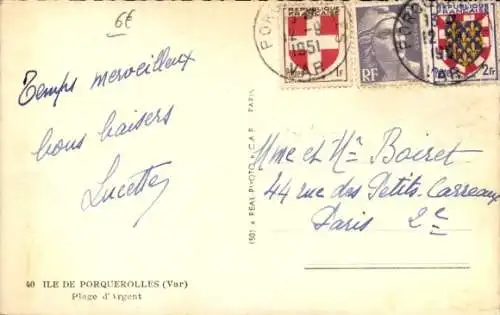 6€
Temps merveilleux
bons baisers
Lucette
40 ILE DE PORQUEROLLES (Var)
Plage d'Argent
REAL PHOTO C.A.P. PARIS
REPUBLIQUE FRANÇAISE
1F
RF
REPUBLIQUE FRANÇAISE
2F
1951
VAR
Mme et Mr Boiret
44 rue des Petits-Carreaux
Paris 2e